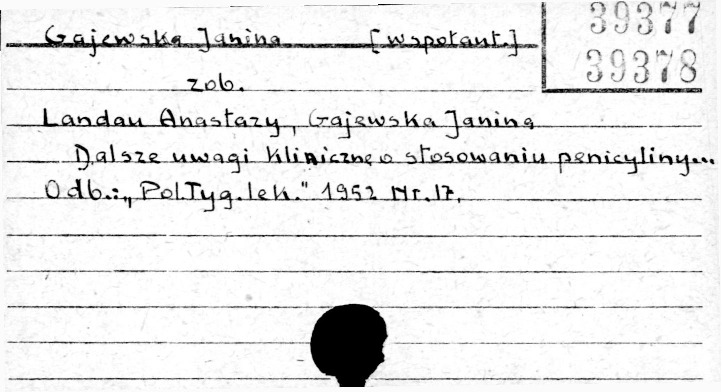 39377
Gajewska Janina [współaut.]
39378
zob.
Landau Anastazy, Gajewska Janina
Dalsze uwagi kliniczne o stosowaniu penicyliny...
Odb.: „Pol.Tyg.lek." 1952 Nr.17.